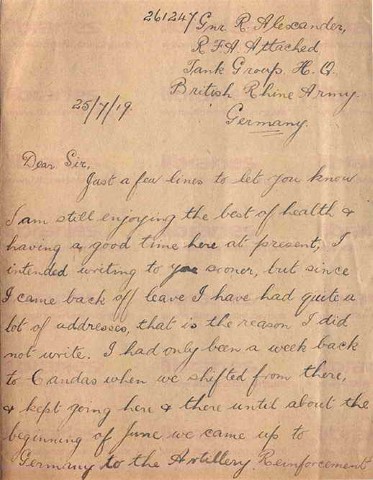 261247 Gnr R. Alexander,
R F A Attached
Tank Group H. Q.
British Rhine Army.
Germany
25/7/19.
Dear Sir,
Just a few lines to let you know
I am still enjoying the best of health &
having a good time here at present, I
intended writing to you sooner, but since
I came back off leave I have had quite a
lot of addresses, that is the reason I did
not write. I had only been a week back
to Candas when we shifted from there,
& kept going here & there until about the
beginning of June we came up to
Germany to the Artillery Reinforcement